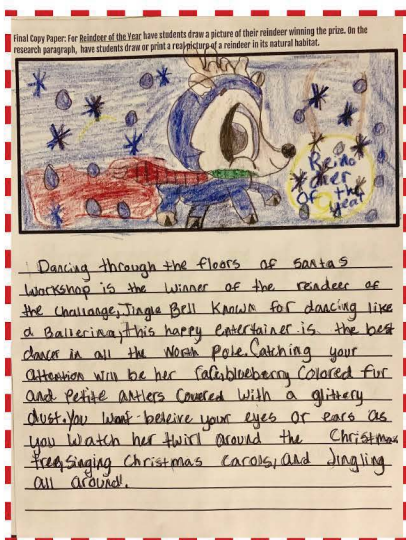 Final Copy Paper: For Reindeer of the Year have students draw a picture of their reindeer winning the prize. On the
research paragraph, have students draw or print a real picture of a reindeer in its natural habitat.
Rein
deer
of the
year
Dancing through the floors of santas
workshop is the winner of the reindeer of
the challange, Jingle Bell Known for dancing like
a Ballerina, this happy entertainer is the best
dancer in all the North Pole. Catching your
attention will be her rare, blueberry colored fur
and petite antlers covered with a glittery
dust. You wont beleive your eyes or ears as
you watch her twirl around the Christmas
tree, singing Christmas carols, and Jingling
all around!